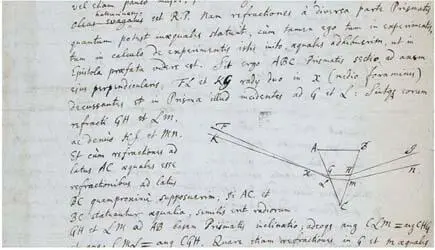 vel etiam paulo major,
est R.P. Nam refractiones à diversa parte Prismatis
quantum potest inæquales statuit, cum tamen ego tum in experimentis
tum in calculo de experimentis istis inito, æquales adhibuerim, ut in
Epistola præfata videre est. Sit ergo ABC Prismatis sectio, ad axem
ejus perpendicularis, FL et KG radij duo in x (medio foraminis)
decussantes et in Prisma illud incidentes ad G et L: Suntque eorum
refracti GH et LM.
ac denuò HI et MN.
Et cum refractiones ad
latus AC æquales esse
refractionibus ad latus
BC quamproxime supposuerim, si AC et
BC statuantur æqualia, similis erit radiorum
GH et LM ad AB basem Prismatis inclinatio; adeoque ang CLM = ang CHG
et ang: CML = ang CGH. Quare etiam refractiones in G et M æquales
A B
F
K
x
G H
L M
C
I
N